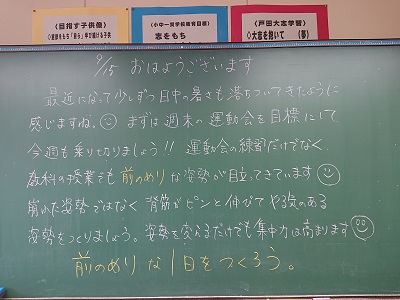 目指す子供像
小中一貫学校教育目標
志をもち
〈戸田大志学習〉
◇大志を抱いて (夢)
9/15 おはようございます
最近になって少しずつ日中の暑さも落ちついてきたように
感じますね。まずは週末の運動会を目標にして
今週も乗り切りましょう!! 運動会の練習だけでなく、
教科の授業でも前のめりな姿勢が目立ってきています
崩れた姿勢ではなく背筋がピンと伸びてやる気のある
姿勢をつくりましょう。姿勢を変えるだけでも集中力は高まります
前のめりな1日をつくろう。